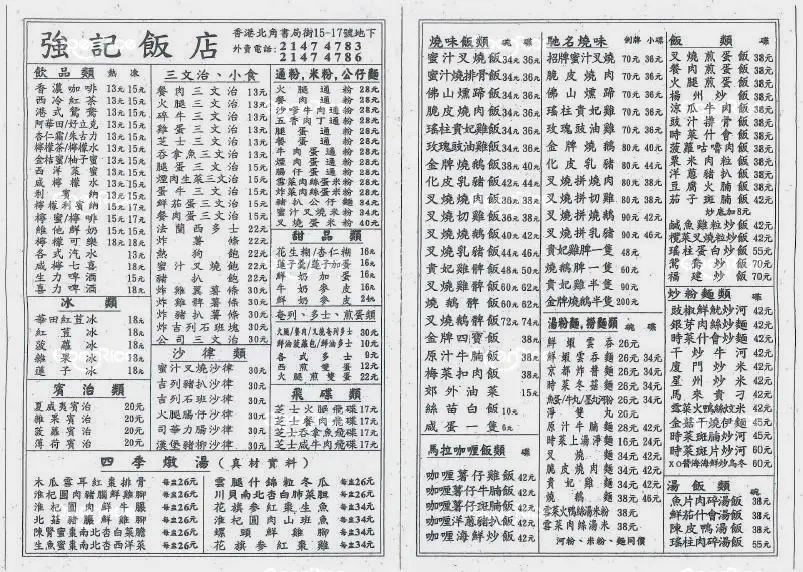 強記飯店
香港北角書局街15-17號地下
外賣電話: 2147 4783
2147 4786
飲品類 熱 凍
香濃咖啡 13元 15元
西冷紅茶 13元 15元
港式鴛鴦 13元 15元
阿華田/好立克 13元 15元
杏仁霜/朱古力 13元 15元
檸檬茶/檸檬水 13元 15元
金桔蜜/柚子蜜 13元 15元
西洋菜蜜 13元 15元
咸檸檬水 13元 15元
利賓納 13元 15元
檸檬利賓納 15元 17元
檸蜜/檸啡 15元 17元
維他鮮奶 15元 15元
檸檬可樂 18元 18元
各式汽水 13元
咸檸七喜 18元
生力啤酒 15元
喜力啤酒 18元
冰類
華田紅荳冰 18元
紅荳冰 18元
菠蘿冰 18元
雜果冰 18元
蓮子冰 18元
賓治類
夏威夷賓治 20元
雜果賓治 20元
菠蘿賓治 20元
薄荷賓治 20元
三文治、小食
餐肉三文治 13元
火腿三文治 13元
碎牛三文治 13元
雞蛋三文治 13元
芝士三文治 13元
吞拿魚三文治 15元
腿蛋三文治 15元
煙肉生菜三文治 15元
蛋牛三文治 15元
鮮茄蛋三文治 15元
餐肉蛋三文治 15元
法蘭西多士 22元
炸薯條 22元
熱狗飽 22元
蜜汁叉燒飽 22元
豬扒飽 22元
炸雞翼薯條 30元
炸雞髀薯條 30元
炸豬扒薯條 30元
炸吉列石班塊 30元
公司三文治 30元
沙律類
蜜汁叉燒沙律 30元
吉列豬扒沙律 30元
吉列石班沙律 30元
火腿腸仔沙律 30元
司華力腸沙律 30元
漢堡豬柳沙律 30元
通粉,米粉,公仔麵
火腿通粉 28元
餐肉通粉 28元
沙嗲牛肉通粉 28元
五香肉丁通粉 28元
腿蛋通粉 28元
餐蛋通粉 28元
牛肉蛋通粉 28元
煙肉蛋通粉 28元
腸仔蛋通粉 28元
雪菜肉絲蛋米粉 28元
炸菜肉絲蛋米粉 28元
豬扒公仔麵 34元
蜜汁叉燒米粉 34元
叉燒蛋米粉 40元
甜品類
花生糊/杏仁糊 16元
蓮子羹/蓮子加蛋 16元
鮮奶加蛋 16元
牛奶麥皮 16元
鮮奶麥皮 24元
奄列、多士、煎蛋類
火腿/餐肉/叉燒奄列多士 30元
鮮油菠蘿包/鮮油多士 10元
各式多士 9元
西煎雙蛋 12元
火腿煎雙蛋 22元
飛碟類
芝士火腿飛碟 17元
芝士餐肉飛碟 17元
芝士吞拿魚飛碟 17元
芝士咸牛肉飛碟 17元
四季燉湯(真材實料)
木瓜雪耳紅棗排骨 每盅26元
淮杞圓肉豬腦鮮雞腳 每盅26元
淮杞圓肉鮮牛腱 每盅26元
北菇豬腱鮮雞腳 每盅26元
陳腎蜜棗南北杏白菜膽 每盅26元
生魚蜜棗南北杏西洋菜 每盅26元
雲腿什錦粒冬瓜 每盅34元
川貝南北杏白肺菜膽 每盅34元
花旗參紅棗生魚 每盅34元
淮杞圓肉山班魚 每盅34元
螺頭鮮雞腳 每盅34元
花旗參紅棗雞 每盅34元
燒味飯類 碗 碟
蜜汁叉燒飯 34元 36元
蜜汁燒排骨飯 34元 36元
佛山燻蹄飯 34元 36元
脆皮燒肉飯 34元 36元
瑤柱貴妃雞飯 34元 36元
玫瑰豉油雞飯 34元 36元
金牌燒鵝飯 38元 40元
化皮乳豬飯 42元 44元
叉燒燒肉飯 36元 38元
叉燒切雞飯 36元 38元
叉燒燒鵝飯 40元 42元
叉燒乳豬飯 44元 46元
貴妃雞髀飯 48元 50元
燒鵝頸飯 60元 62元
燒鵝髀飯 60元 62元
叉燒鵝髀飯 72元 74元
金牌四寶飯 38元
原汁牛腩飯 38元
梅菜扣肉飯 38元
郊外油菜 15元
絲苗白飯 10元
咸蛋一隻 6元
馬拉咖喱飯類 碟
咖喱薯仔雞飯 42元
咖喱薯仔牛腩飯 42元
咖喱薯仔斑腩飯 42元
咖喱洋蔥豬扒飯 42元
咖喱海鮮炒飯 42元
馳名燒味 例牌 小碟
招牌蜜汁叉燒 70元 36元
脆皮燒肉 70元 36元
佛山燻蹄 70元 36元
瑤柱貴妃雞 70元 36元
玫瑰豉油雞 70元 36元
金牌燒鵝 80元 40元
化皮乳豬 80元 44元
叉燒拼燒肉 80元 38元
叉燒拼切雞 80元 38元
叉燒拼燒鵝 90元 42元
叉燒拼乳豬 90元 46元
貴妃雞髀一隻 48元
燒鵝髀一隻 60元
貴妃雞半隻 90元
金牌燒鵝半隻 200元
湯粉麵,撈麵類 碗 碟
鮮蝦雲吞 26元
鮮蝦雲吞麵 26元 34元
京都炸醬麵 26元 34元
時菜冬菇麵 28元 34元
魚蛋/牛丸/墨丸河粉 26元 34元
淨雙丸 20元
原汁牛腩麵 28元 42元
時菜上湯淨麵 16元 24元
叉燒麵 34元 42元
脆皮燒肉麵 34元 42元
貴妃雞麵 34元 42元
燒鵝麵 38元 46元
雪菜火鴨絲湯米粉 38元
雪菜肉絲湯米 38元
河粉、米粉、麵同價
飯類 碟
叉燒煎蛋飯 38元
餐肉煎蛋飯 38元
火腿煎蛋飯 38元
楊州炒飯 38元
涼瓜牛肉飯 38元
豉汁排骨飯 38元
時菜什會飯 38元
菠蘿咕嚕肉飯 38元
粟米肉粒飯 38元
洋蔥豬扒飯 38元
豆腐火腩飯 38元
茄子斑腩飯 42元
炒底加8元
鹹魚雞粒炒飯 42元
欖菜叉燒粒炒飯 42元
瑤柱蛋白炒飯 55元
鴛鴦炒飯 70元
福建炒飯 70元
炒粉麵類 碟
豉椒鮮魷炒河 42元
銀芽肉絲炒麵 42元
時菜什會炒麵 42元
干炒牛河 42元
廈門炒米 42元
星州炒米 42元
馬來貴刁 42元
雪菜火鴨絲炆米 42元
金菇干燒伊麵 45元
時菜斑腩炒河 45元
時菜斑片炒河 60元
XO醬海鮮炒烏冬 60元
湯飯類 碗
魚片肉碎湯飯 38元
鮮茄什會湯飯 38元
陳皮鴨湯飯 38元
瑤柱肉碎湯飯 55元